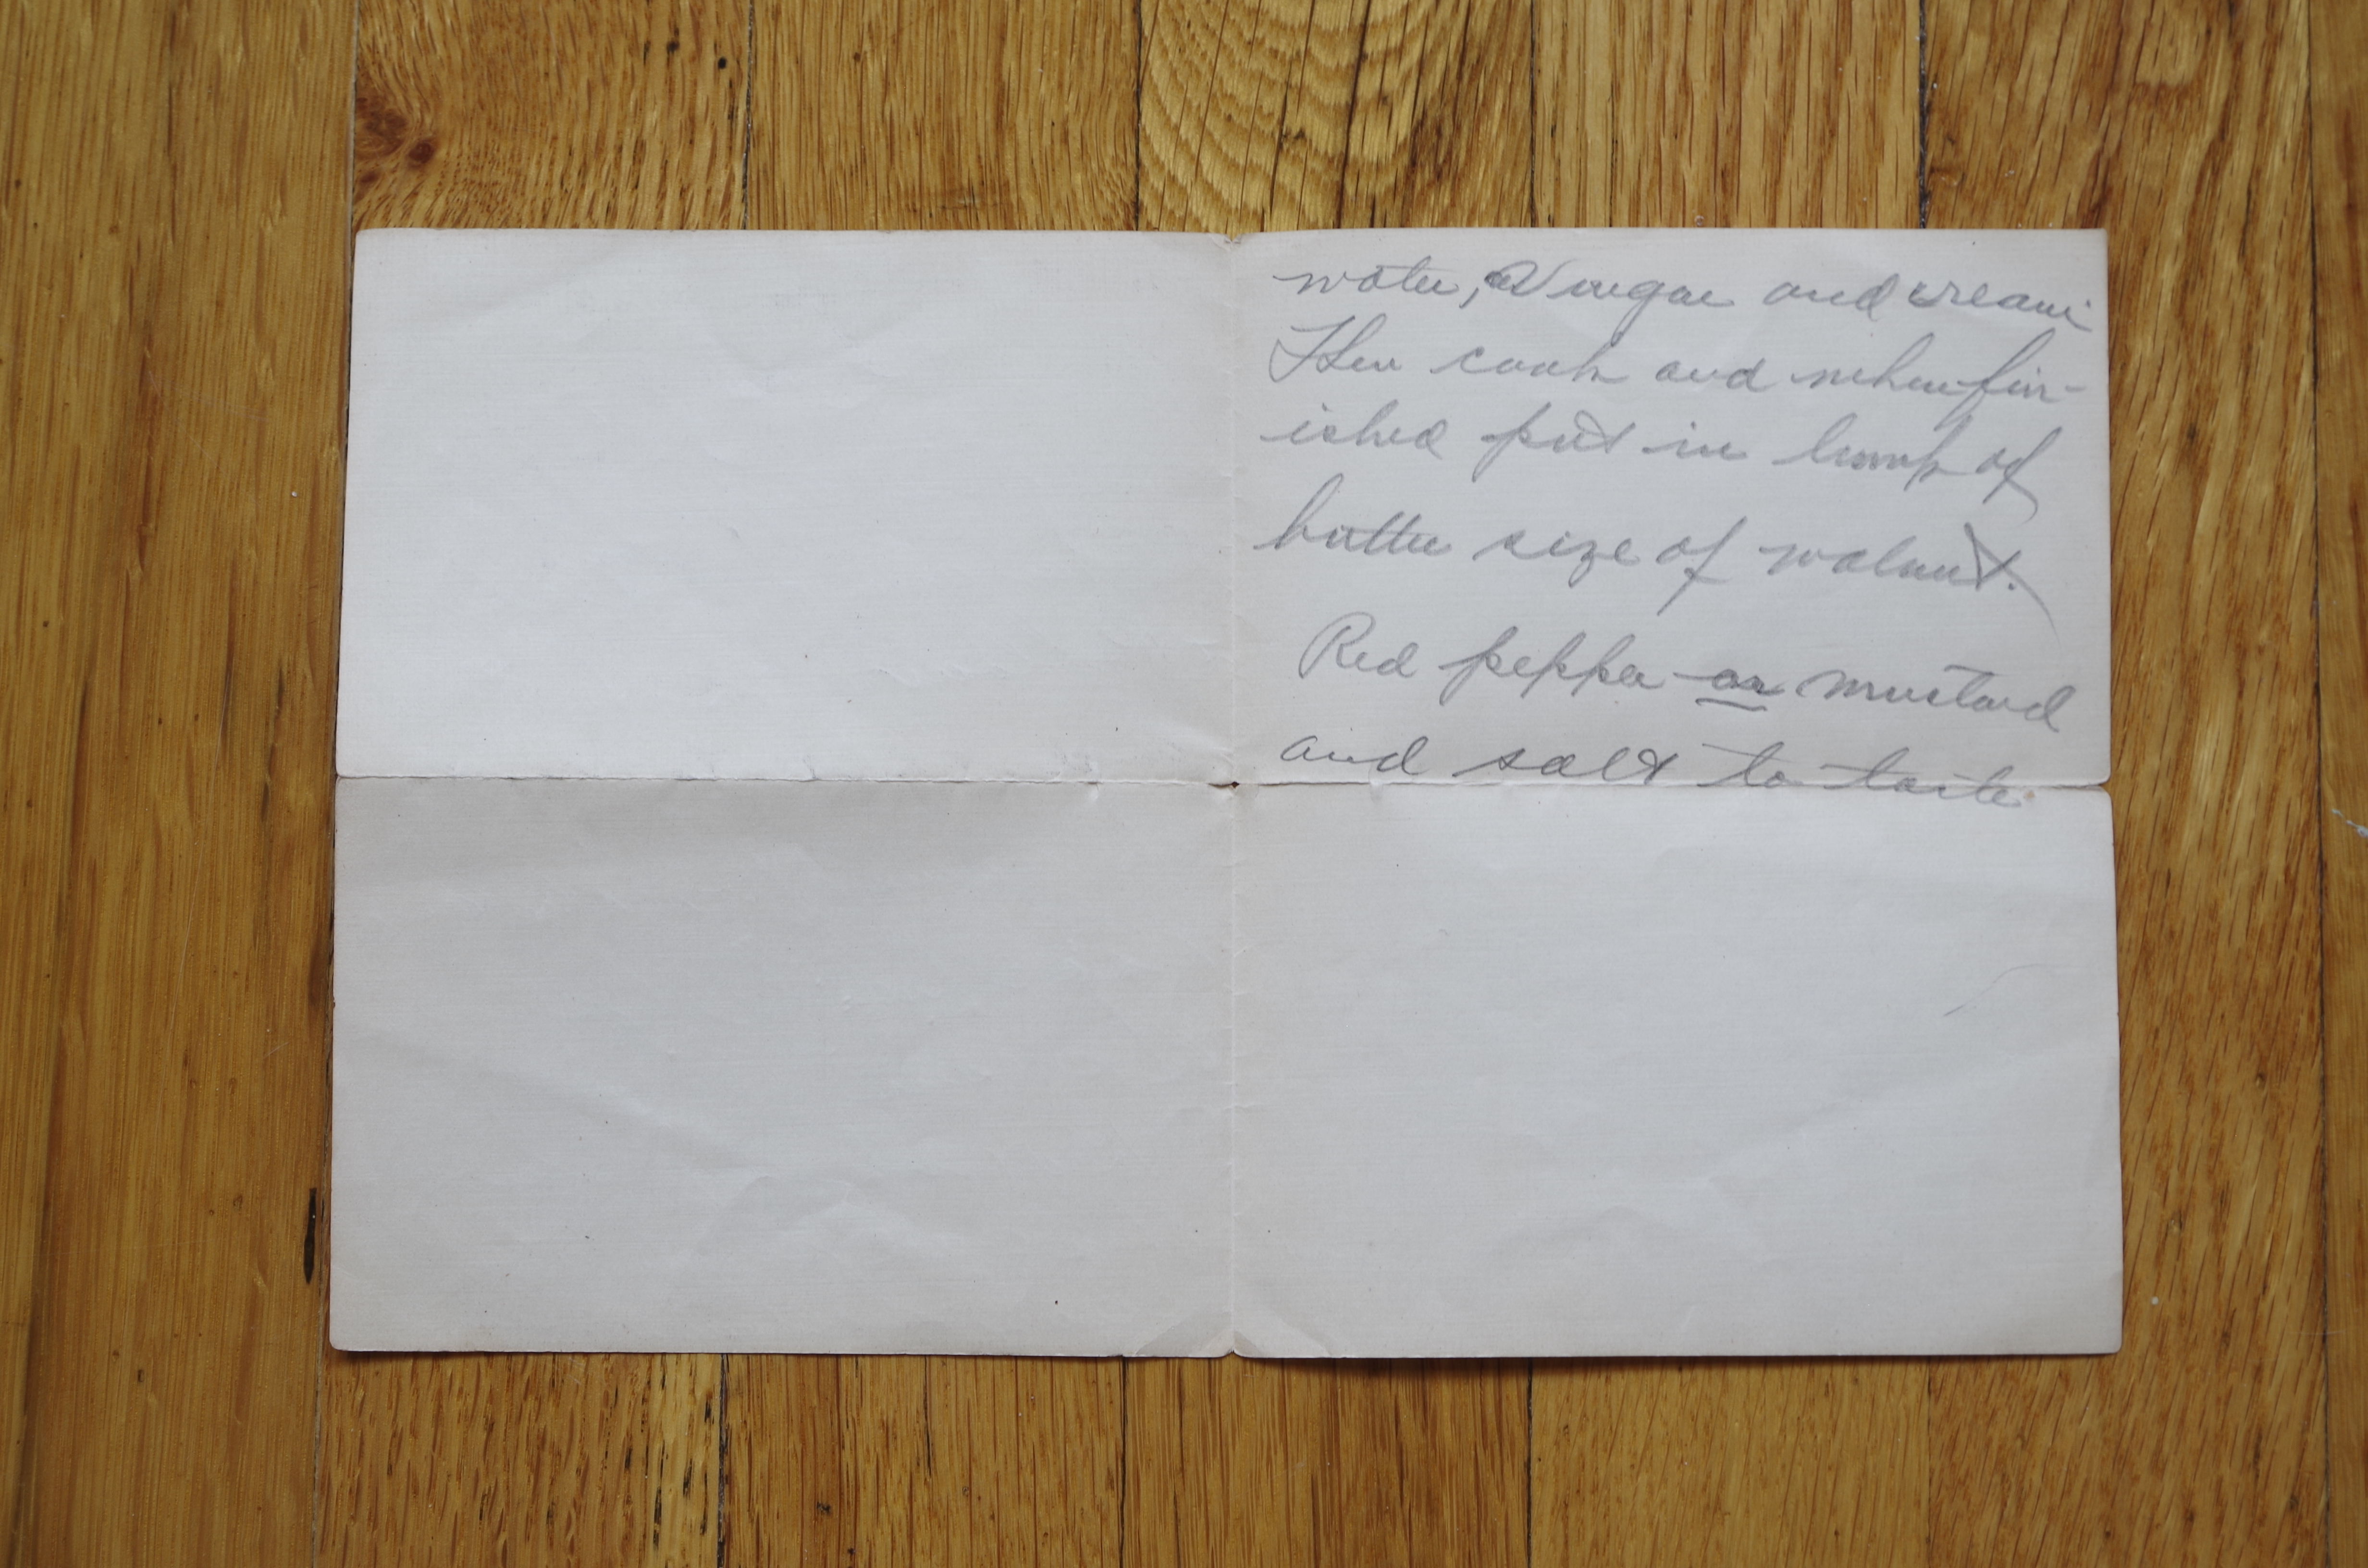 water, Vinegar and cream
Then cook and when fin-
ished put in lump of
butter size of walnut.
Red pepper or mustard
and salt to taste